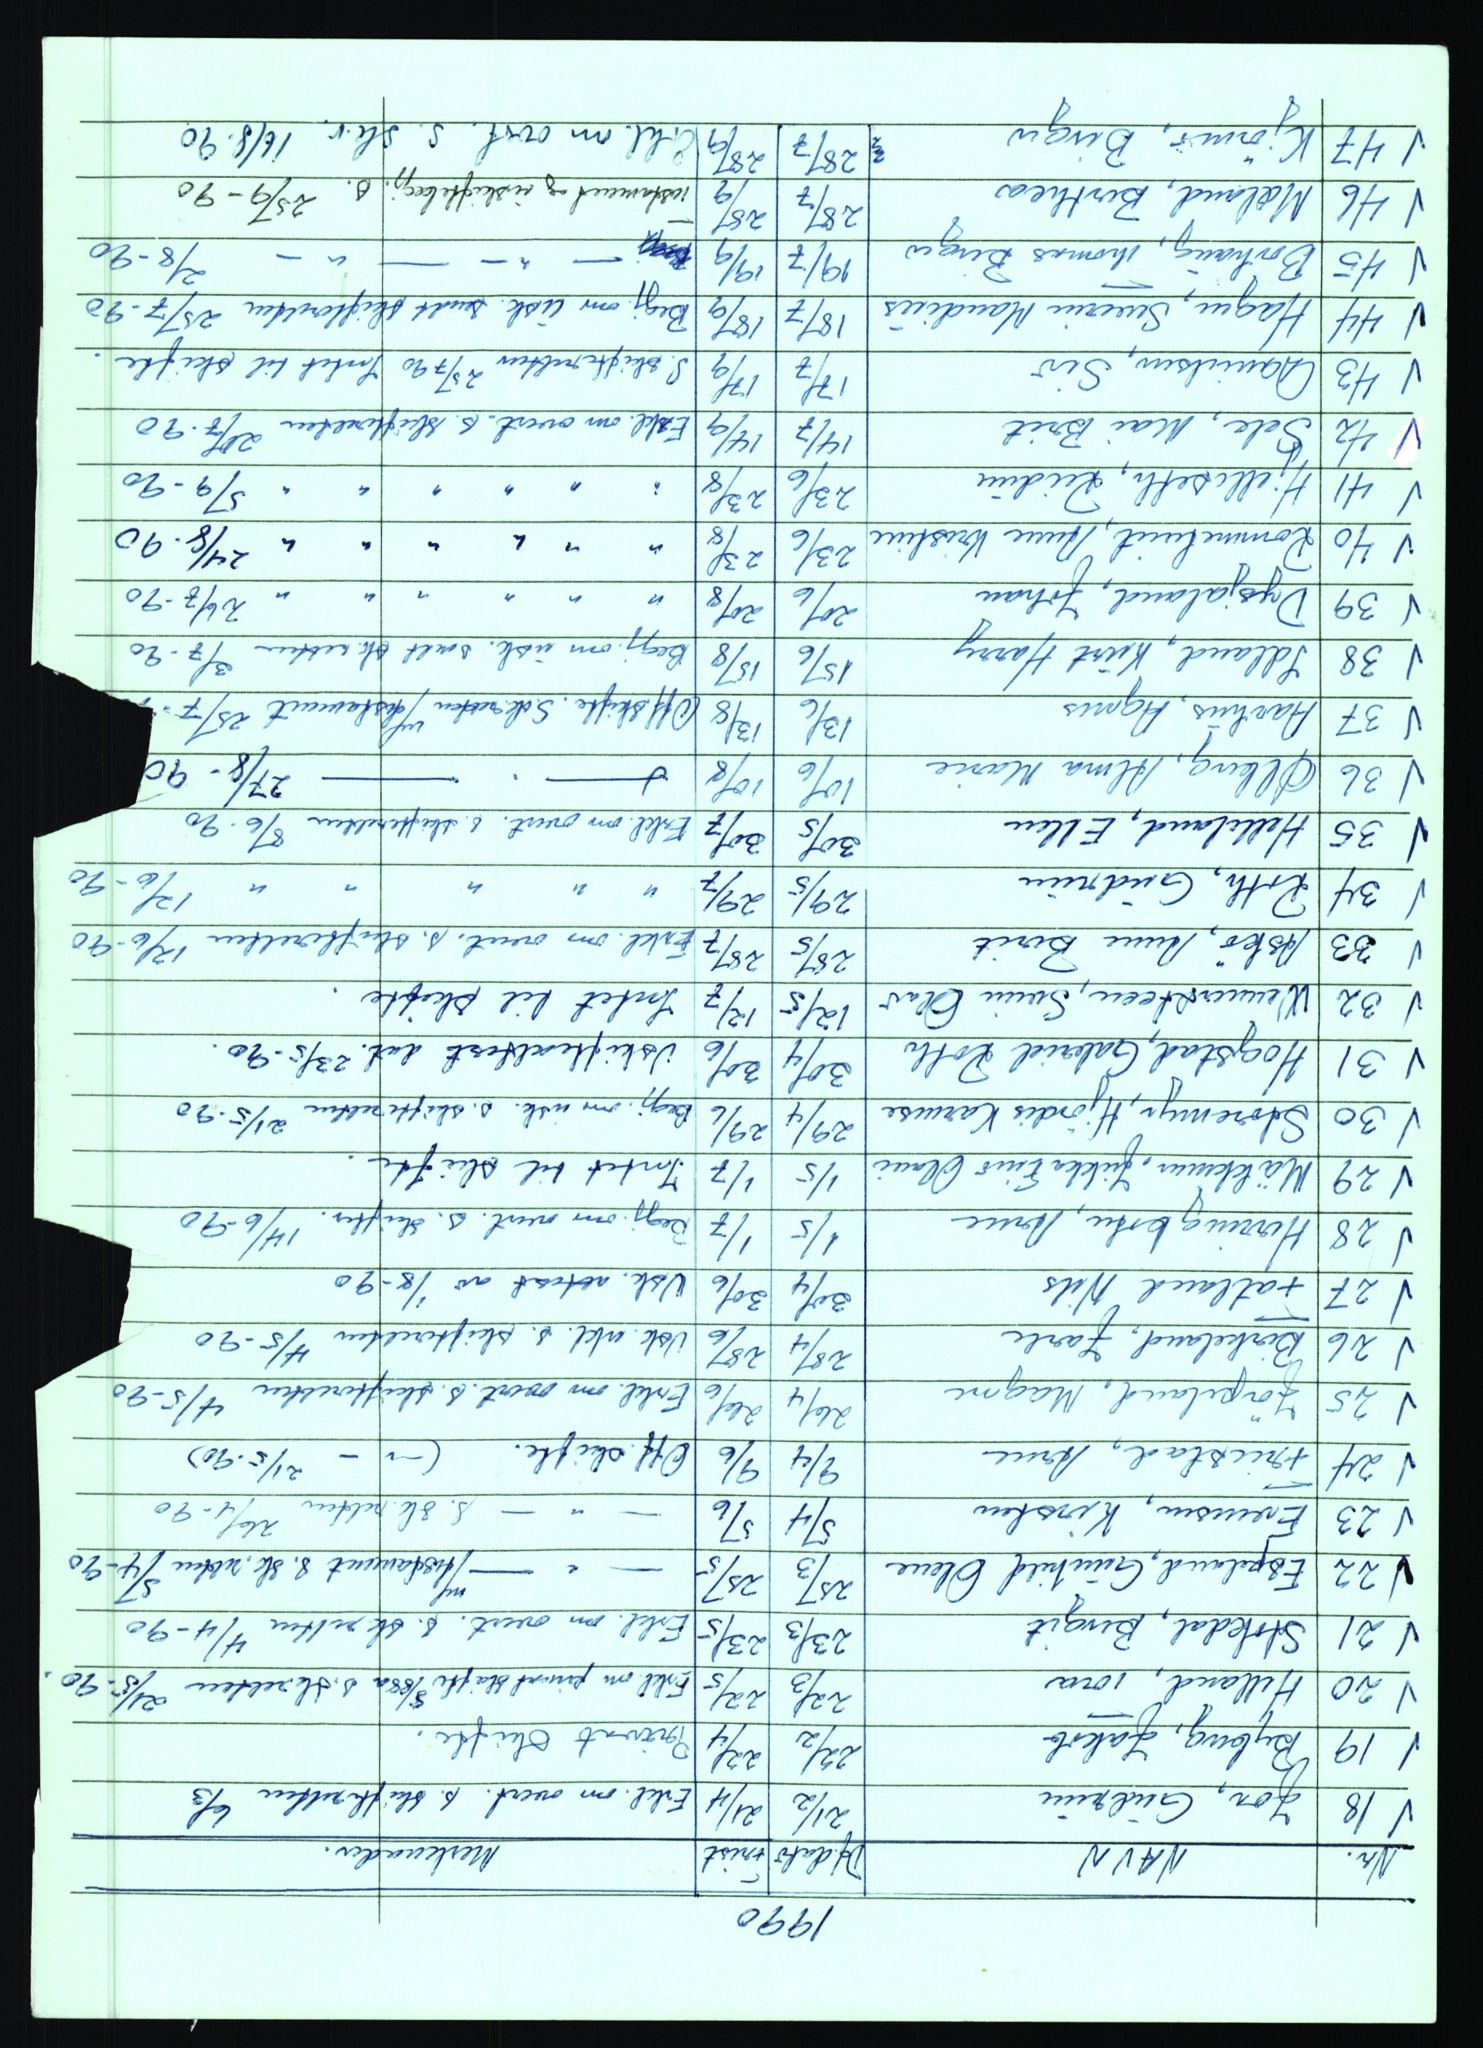 1990
Nr. NAVN Df.dato Frist Merknader.
√ 18 Jor, Gudrun 21/2 21/4 Erkl. om overt. s. skifteretten 6/3
√ 19 Byberg, Jakob 22/2 22/4 Privat skifte.
√ 20 Helland, Tora 22/3 22/5 Erkl. om privat skifte s. sk.retten 21/5-90.
√ 21 Stokdal, Birgit 23/3 23/5 Erkl. om overt. s. sk.retten 4/4-90
√ 22 Espeland, Gunhild Olene 25/3 25/5 — " — m/testament s. sk.retten 5/4-90
√ 23 Evensen, Kirsten 5/4 5/6 — " — s. sk.retten 26/4-90
√ 24 Fristad, Arne 9/4 9/6 Off. skifte. (— " — 21/5-90)
√ 25 Jørpeland, Magne 26/4 26/6 Erkl. om overt. s. skifteretten 4/5-90
√ 26 Birkeland, Jarle 28/4 28/6 Usk. erkl. s. skifteretten 4/5-90
√ 27 Fatland Nils 30/4 30/6 Usk. attest av 1/8-90
√ 28 Herringbotn, Arne 1/5 1/7 Begj. om overt. s. skifter. 14/6-90
√ 29 Mäkinen, Jukka Eino Olavi 1/5 1/7 Intet til skifte.
√ 30 Storemyr, Hjørdis Karense 29/4 29/6 Begj. om usk. s. skifteretten 21/5-90
√ 31 Hogstad, Gabriel Roth 30/4 30/6 Uskifteattest dat. 23/5-90.
√ 32 Wennersteen, Svein Olav 12/5 12/7 Intet til skifte.
√ 33 Askø, Anne Berit 28/5 28/7 Erkl. om overt. s. skifteretten 12/6-90
√ 34 Roth, Gudrun 29/5 29/7 " " " " " 12/6-90
√ 35 Helliland, Ellen 30/5 30/7 Erkl. om overt. s. skifteretten 8/6-90
√ 36 Ølberg, Alma Marie 10/6 10/8 — " — 27/8-90
√ 37 Aarhus, Agnes 13/6 13/8 Off. skifte. Sk.retten m/testament 25/7-
√ 38 Idland, Kurt Harry 15/6 15/8 Begj. om usk. sendt sk.retten 3/7-90
√ 39 Drysjaland, Johan 20/6 20/8 " " " " " " 26/7-90
√ 40 Rommetveit, Anne Kristine 23/6 23/8 " " " " " " 24/8-90
√ 41 Hjelleseth, Reidun 23/6 23/8 " " " " " " 5/9-90
√ 42 Sele, Mai Brit 14/7 14/9 Erkl. om overt. s. skifteretten 20/7-90
√ 43 Danielsen, Siv 17/7 17/9 S. skifteretten 25/7 90 Intet til skifte.
√ 44 Hagen, Sverin Mandius 18/7 18/9 Begj. om usk. sendt skifteretten 25/7-90
√ 45 Borhaug, Thomas Birger 19/7 19/9 — " — — " — 2/8-90
√ 46 Mæland, Berthea 28/7 28/9 Testament og uskiftebegj. s. 25/9-90
√ 47 Kjørmo, Birger 28/7 28/9 Erkl. om overt. s. sk.r. 16/8-90